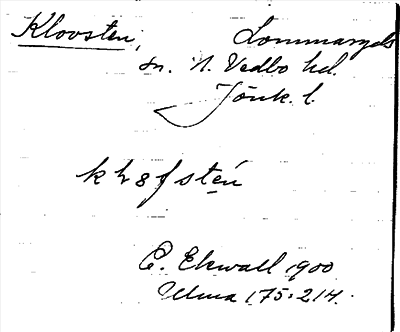 Klovsten, Lommaryds
sn. N. Vedbo hd.
Jönk. l.
E. Ekwall 1900
Ulma 175:214.